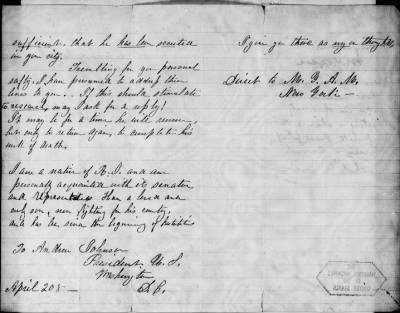 sufficient, that he has been secreted
in your city.
Trembling for your personal
safty, I have presumed to address these
lines to you. If this should stimulate
to research, may I ask for a reply!
It may be for a time he will remain,
but only to return again, to complete his
work of death.
I am a native of R. I. and am
personally acquainted with its senator
and representatives. Have a loved and
only son, now fighting for his country,
and has been since the beginning of hostilities
To Andrew Johnson
President U. S.
Washington
D. C.
April 20
I give you these as my own thoughts,
Direct to M. G. A. M.
New York